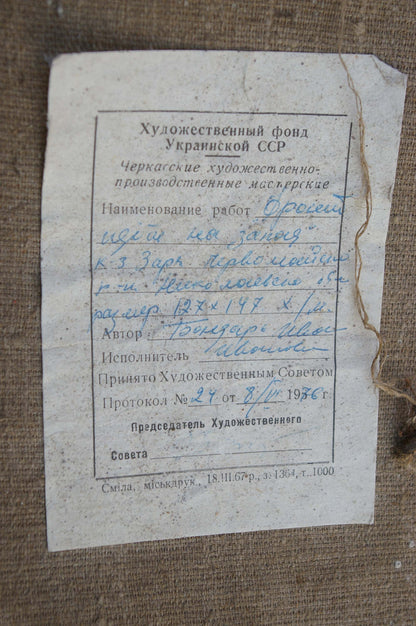 Художественный фонд
Украинской ССР
Черкасские художественно-
производственные мастерские
Наименование работ
на запад
к-з Заря Первомайский
р-н Николаевской
размер 127 х 197 х/м.
Автор Бондарь Иван
Исполнитель Иванович
Принято Художественным Советом
Протокол № 24 от 8/ 1976 г.
Председатель Художественного
Совета
Сміла, міськдрук., 18.III.67 р., з. 1364, т. 1000